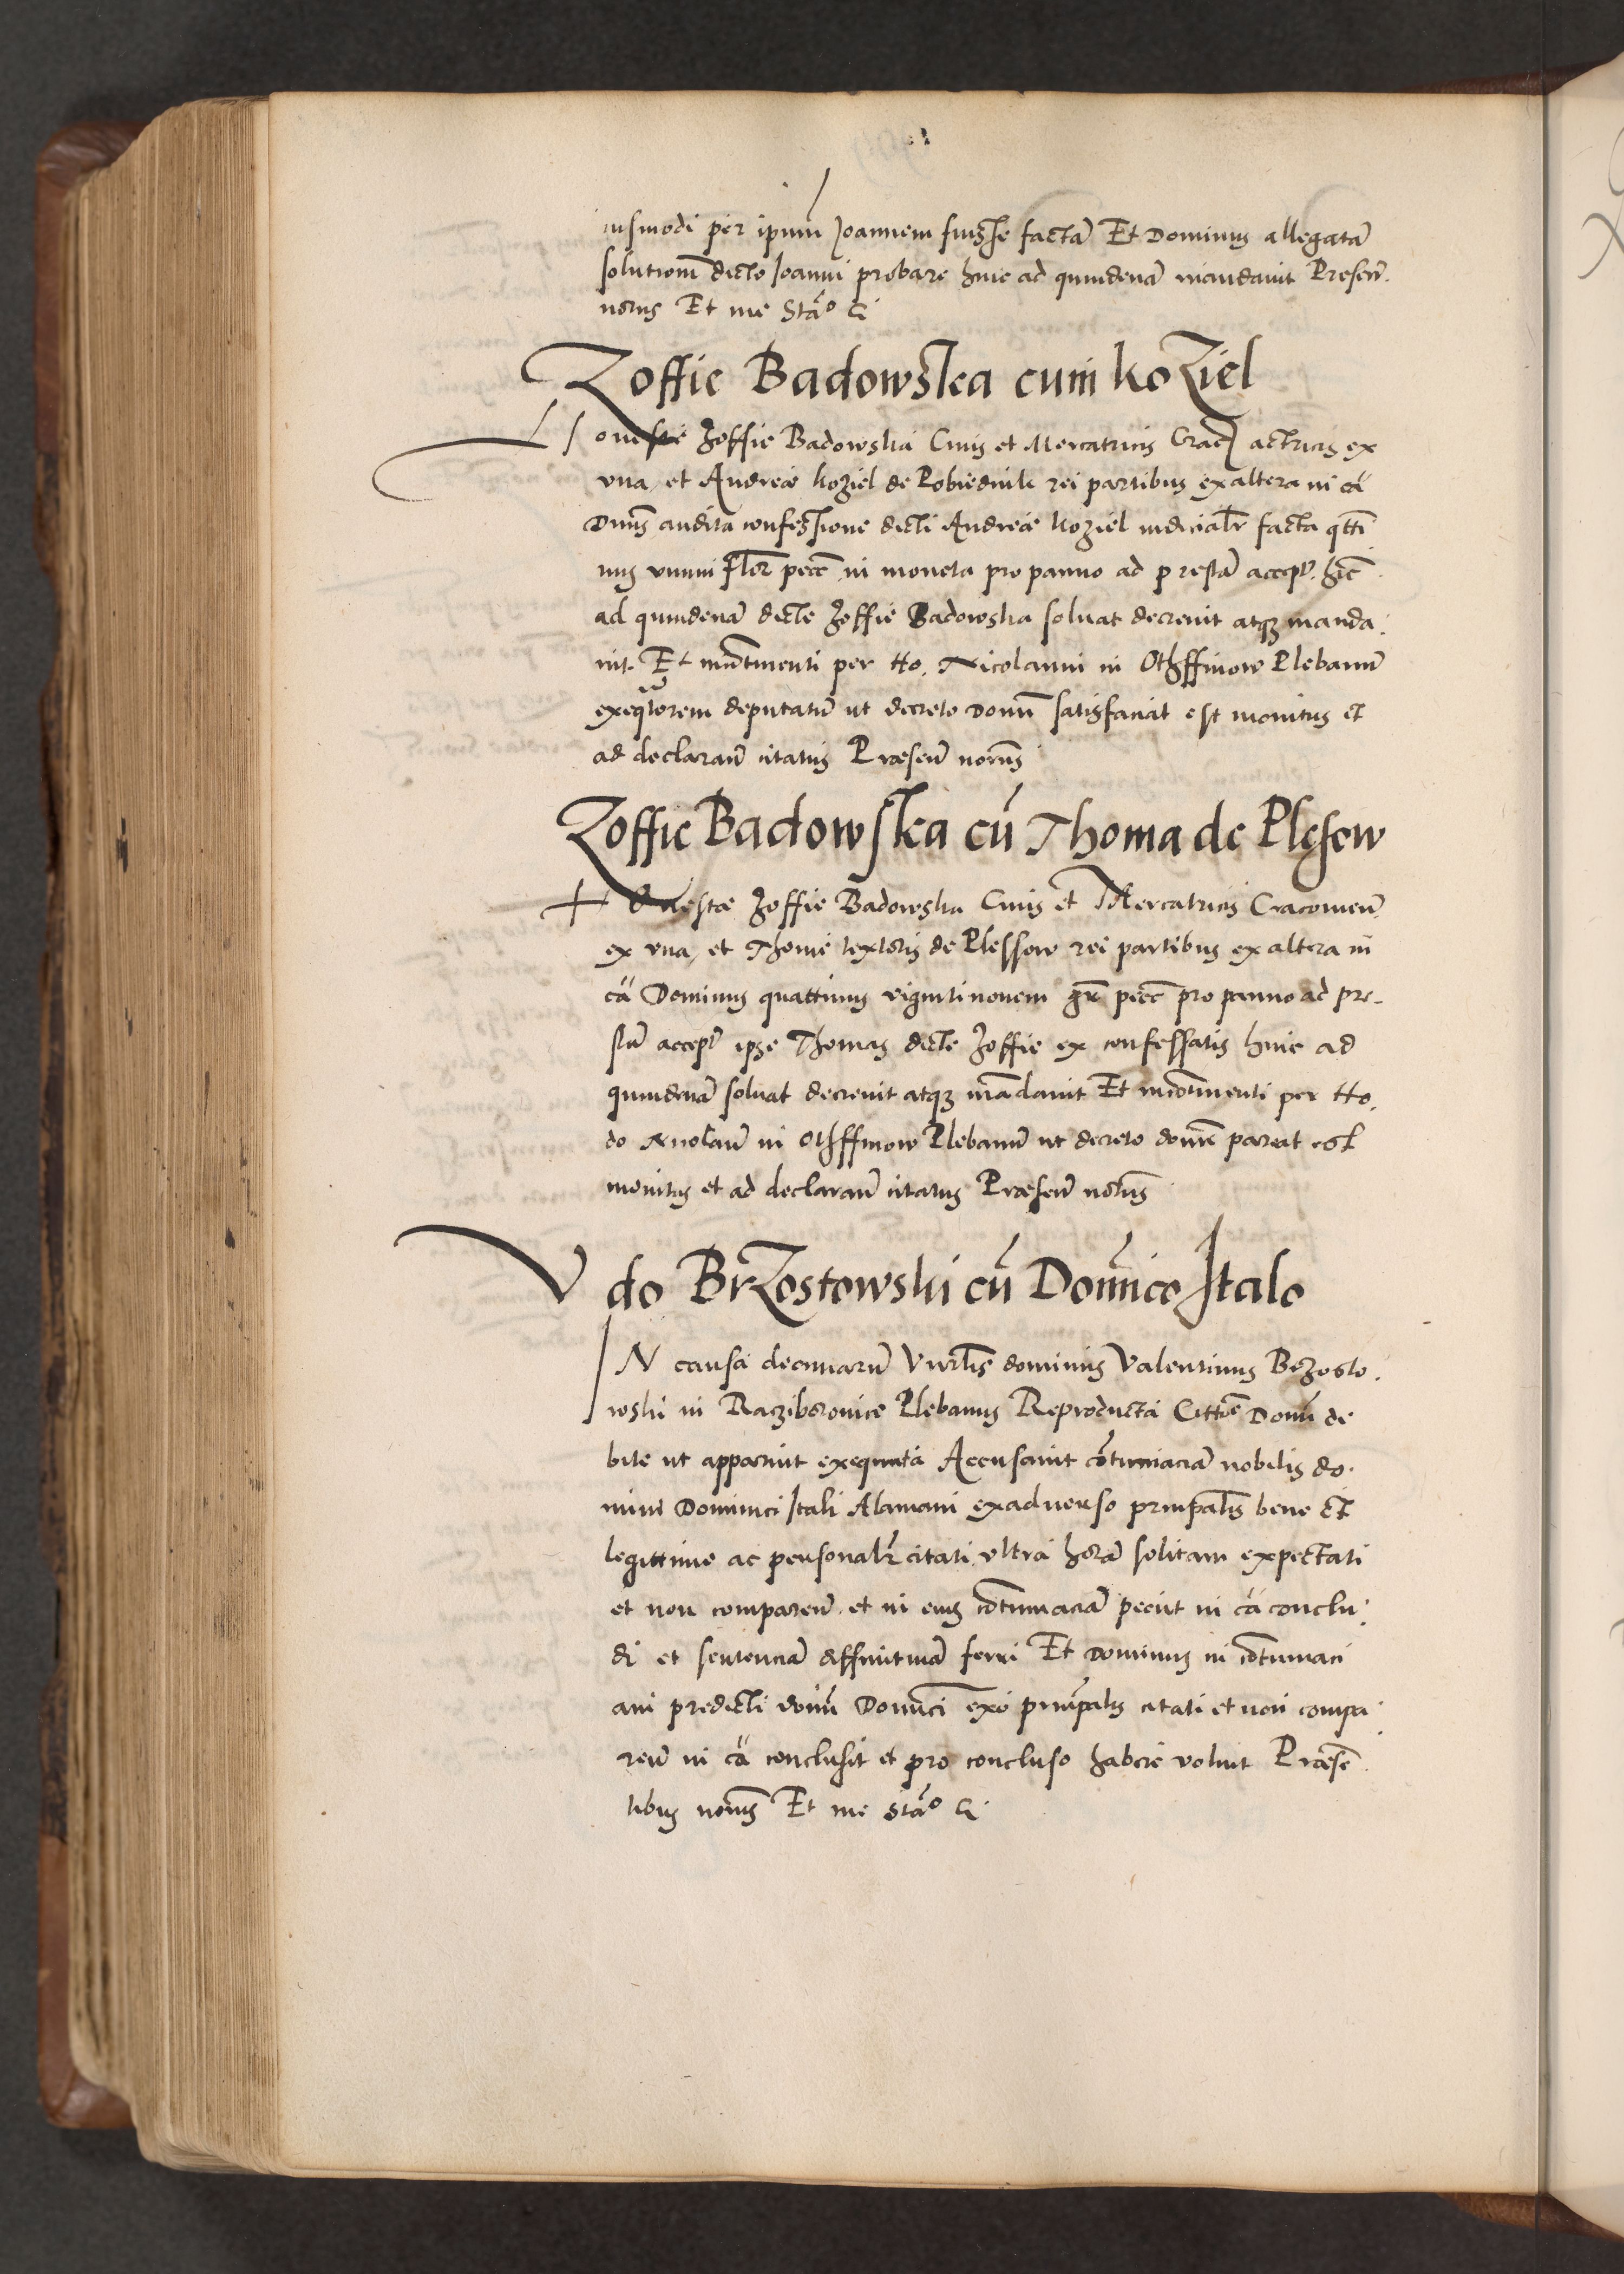 iusmodi per ipum̃ Joannem fuisse factã Et Dominus allegatã
solutionẽ dicto Joanni probare hinc ad quindenã mandavit Presen̄.
notus Et me Stã° &
Zoffie Badowska cum koziel
Honeste Zoffie Badowska Civis et Mercatricis Crac̄ actricis ex
vna, et Andree koziel de Pobiednik rei partibus ex altera in cã
Dnũs audita confessione dicti Andree koziel iudicialr̃ facta qtt̃i
nus vnum flor̃ pec̄ in moneta pro panno ad prestã accept̃ hĩc
ad quindenã dicte Zoffie Badowska soluat decrevit atq3 manda
uit. Et incõtinenti per Ho. Nicolaum in Othffinow Plebanum̃
exeqͣtorem deputatũ ut decreto Domĩ satisfaciat est monitus et
ad declaran̄ citatus Præsen̄ nor̃us
Zoffie Badowska cũ Thoma de Plesow
Honestæ Zoffie Badowska Civis et Mercatricis Cracovien̄
ex vna, et Thome textoris de Plessow rei partibus ex altera in
cã Dominus quattinus viginti novem gr̃ pec̄ pro panno ad pre-
stũ accept̃ ipse Thomas dicte Zoffie ex confessatis hinc ad
quindenã soluat decrevit atq3 mãdavit Et incõtinenti per Ho.
do Nicolaũ in Othffinow Plebanum̃ ut decreto domĩ pareat est
monitus et ad declaran̄ citatus Præsen̄ notus
V do Brzostowski cũ Domĩnico Italo
IN causa decimarũ Vnrl̃is dominus Valentinus Brzosto
wski in Racziborovice Plebanus Reproducta Cittõe Domĩ de
bite ut apparuit exequuta Accusavit cõtumaciã nobilis do.
mini Dominici Itali Alamani ex adverso principalis bene Et
legittime ac personalr̃ citati vltra horã solitam expectati
et non comparen̄. et in eius cõtumaciã peciit in cã conclu
di et sentenciã diffinitivã ferri Et Dominus in cõtumaci
am predicti domĩ Domĩci exõ principalis citati et non compa
ren̄ in cã conclusit et pro concluso habere voluit Præsẽ
tibus nor̃us Et me Stã° &